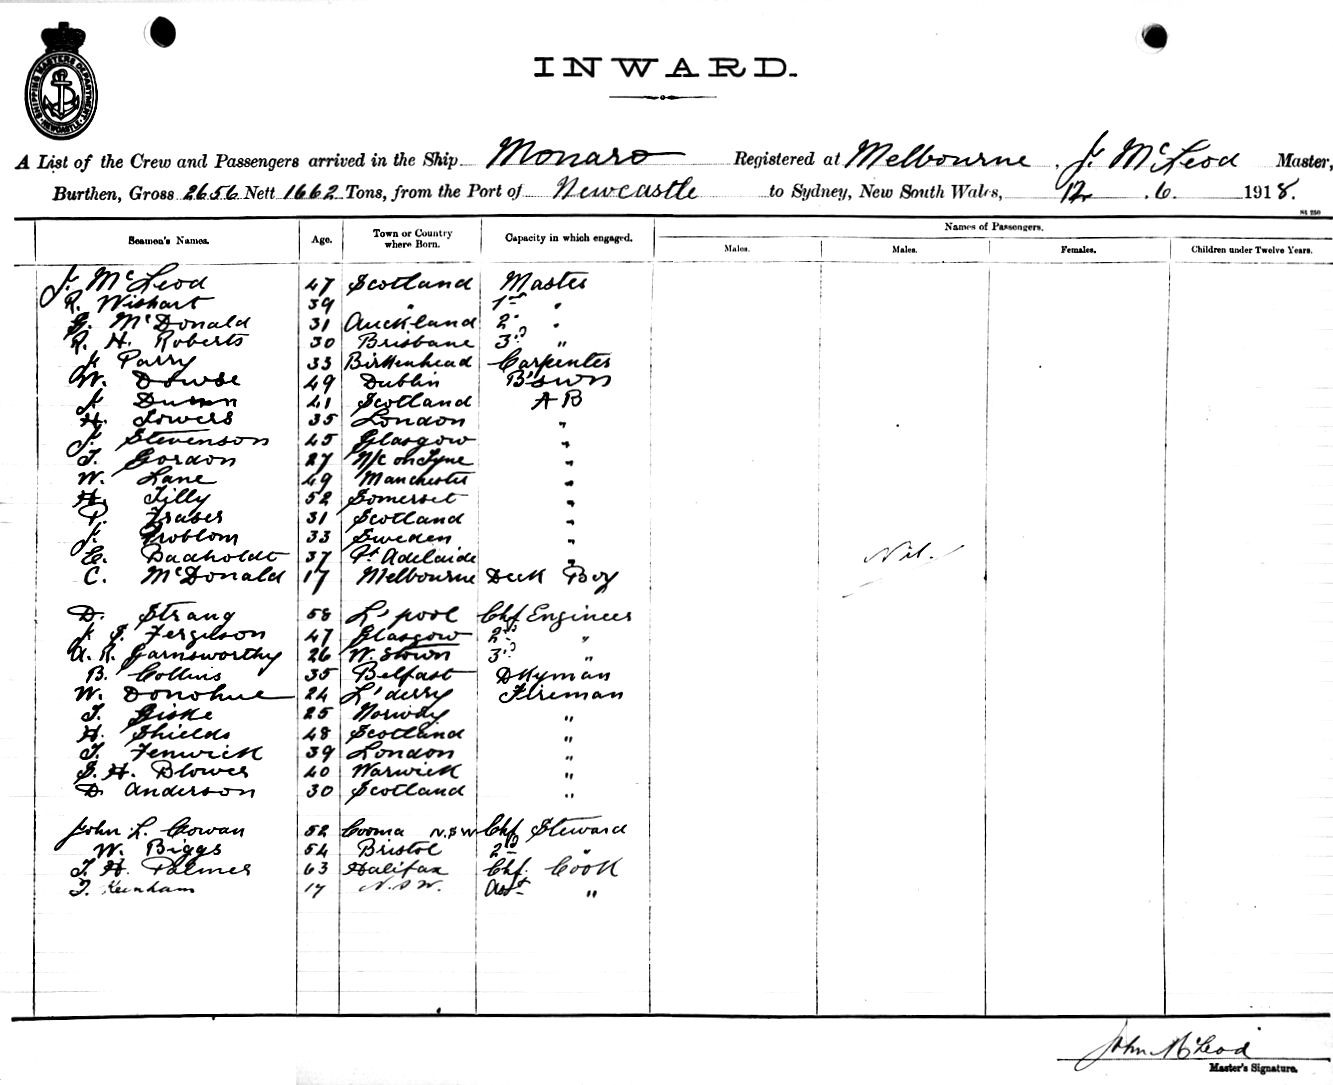 SHIPPING MASTERS DEPARTMENT NEWCASTLE
INWARD.
A List of the Crew and Passengers arrived in the Ship Monaro Registered at Melbourne, J. McLeod Master,
Burthen, Gross 2656 Nett 1662 Tons, from the Port of Newcastle to Sydney, New South Wales, 12.6.1918.
Seamen's Names. Age. Town or Country where Born. Capacity in which engaged. Names of Passengers.
Males. Males. Females. Children under Twelve Years.
J. McLeod 47 Scotland Master
R. Wishart 39 " 1st "
G. McDonald 31 Auckland 2nd "
R. H. Roberts 30 Brisbane 3rd "
J. Parry 33 Birkenhead Carpenter
W. Dowse 49 Dublin B'swn
J. Dunn 41 Scotland AB
H. Towers 35 London "
J. Stevenson 45 Glasgow "
T. Gordon 27 N/c on Tyne "
W. Lane 49 Manchester "
H. Tilly 52 Somerset "
P. Fraser 31 Scotland "
J. Broblom 33 Sweden "
E. Badholdt 37 Pt Adelaide "
Nil.
C. McDonald 17 Melbourne Deck Boy
D. Strang 58 L'pool Chf Engineer
J. J. Ferguson 47 Glasgow 2nd "
A. R. Garnsworthy 26 W. Stown 3rd "
B. Collins 35 Belfast Dkyman
W. Donohue 24 L'derry Fireman
T. Giske 25 Norway "
H. Shields 48 Scotland "
T. Fenwick 39 London "
S. H. Blower 40 Warwick "
D. Anderson 30 Scotland "
John L. Cowan 52 Cooma N.S.W Chf Steward
W. Biggs 54 Bristol 2nd "
T. H. Palmer 63 Halifax Chf. Cook
T. 17 N.S.W. Asst "
John McLeod
Master's Signature.